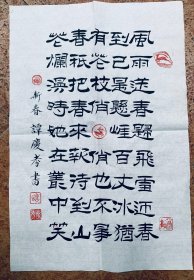 風雨送春歸飛雪迎春
到已是懸崖百丈冰猶
有花枝俏俏也不爭
春祇把春來報待到山
花爛漫時她在叢中笑
新春 譚慶孝書